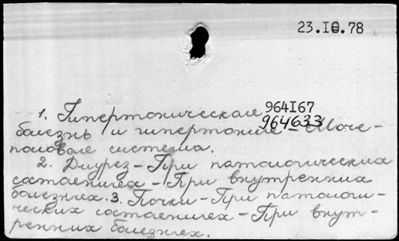 23.I0.78
1. Гипертоническая 964I67
болезнь и гипертония - Моче- 964633
половая система.
2. Диурез - При патологических
состояниях - При внутренних
болезнях. 3. Почки - При патологи-
ческих состояниях - При внут-
ренних болезнях.